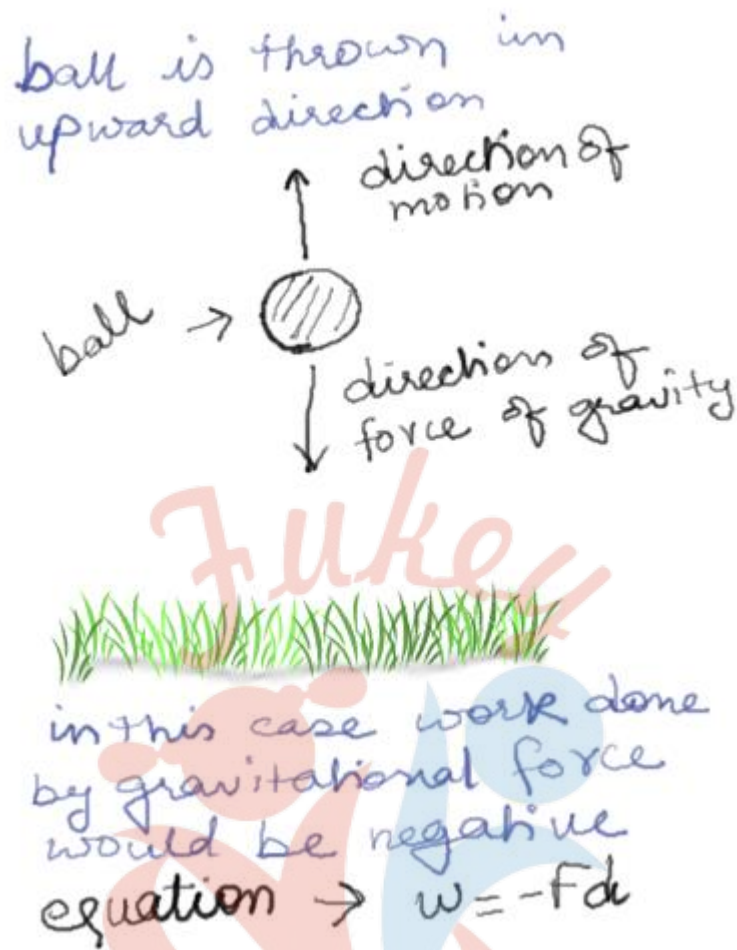 ball is thrown in
upward direction
direction of
motion
ball →
direction of
force of gravity
Fukey
in this case work done
by gravitational force
would be negative
equation → w = -Fd